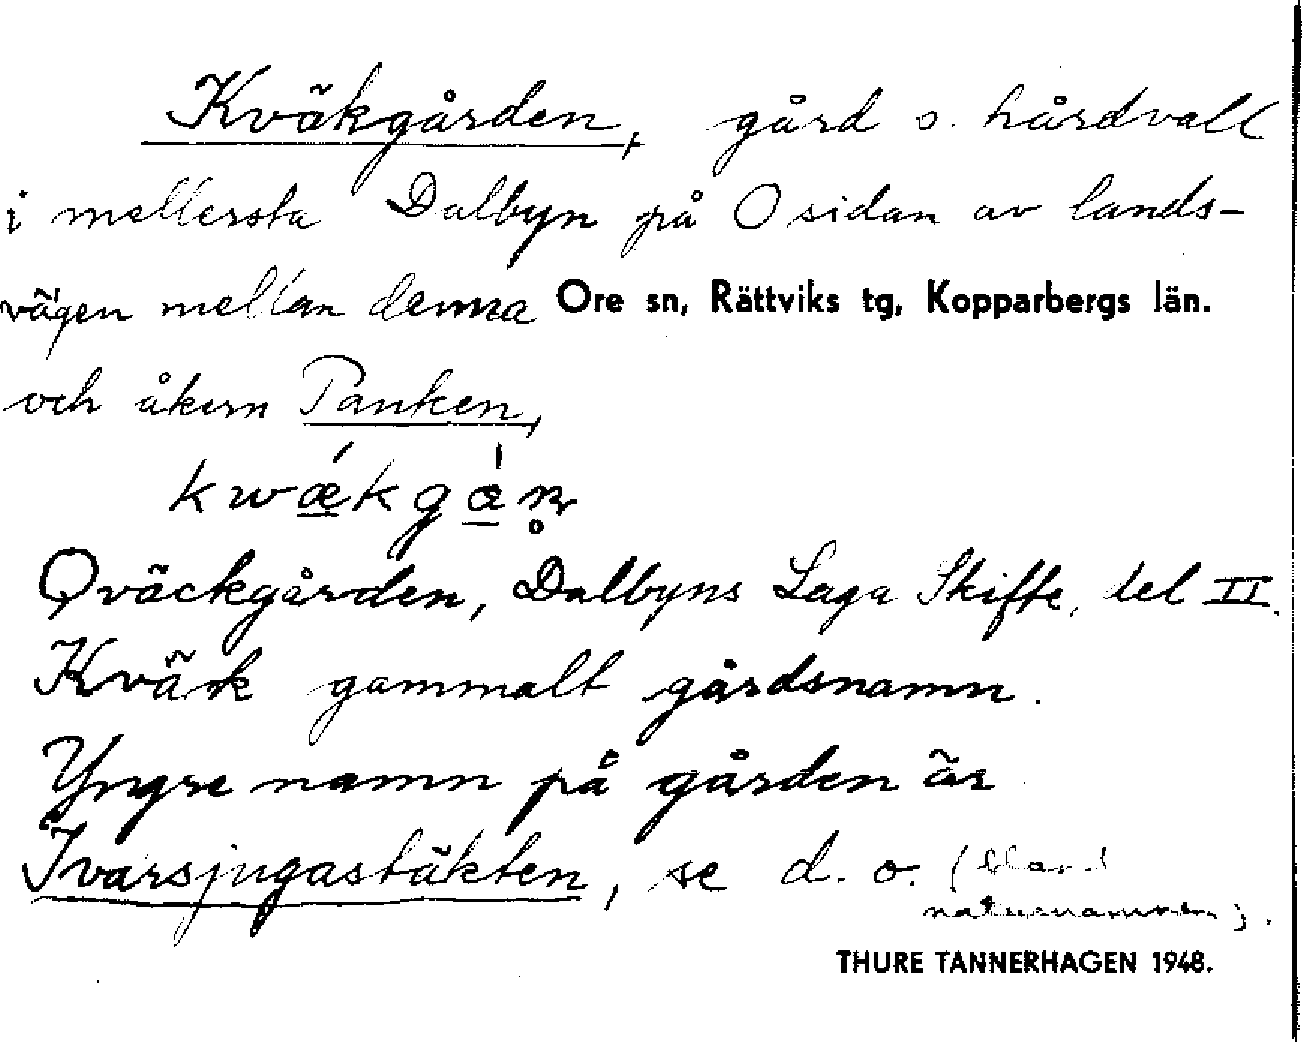 Kväkgården, gård o. hårdvall
i mellersta Dalbyn på O sidan av lands-
vägen mellan denna Ore sn, Rättviks tg, Kopparbergs län.
och åkern Panken,
kwǽkgǻn̥
Qväckgården, Dalbyns Laga Skifte, del II.
Kväk gammalt gårdsnamn.
Yngre namn på gården är
Ivarsjugastäkten, se d. o. (bland
naturnamnen).
THURE TANNERHAGEN 1948.